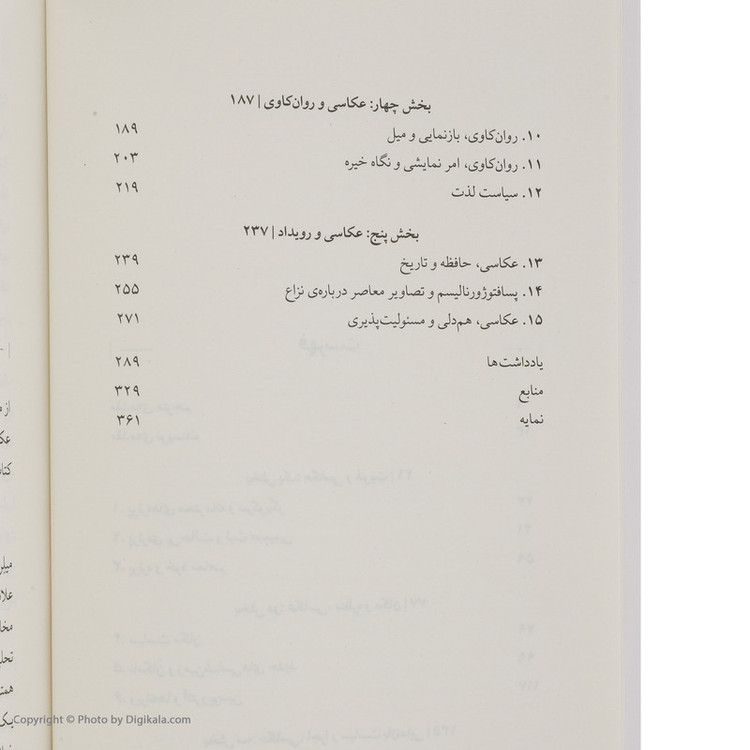 بخش چهار: عکاسی و روان‌کاوی | ۱۸۷
۱۰. روان‌کاوی، بازنمایی و میل ۱۸۹
۱۱. روان‌کاوی، امر نمایشی و نگاه خیره ۲۰۳
۱۲. سیاست لذت ۲۱۹
بخش پنج: عکاسی و رویداد | ۲۳۷
۱۳. عکاسی، حافظه و تاریخ ۲۳۹
۱۴. پسافتوژورنالیسم و تصاویر معاصر درباره‌ی نزاع ۲۵۵
۱۵. عکاسی، هم‌دلی و مسئولیت‌پذیری ۲۷۱
یادداشت‌ها ۲۸۹
منابع ۳۲۹
نمایه ۳۶۱
Copyright © Photo by Digikala.com